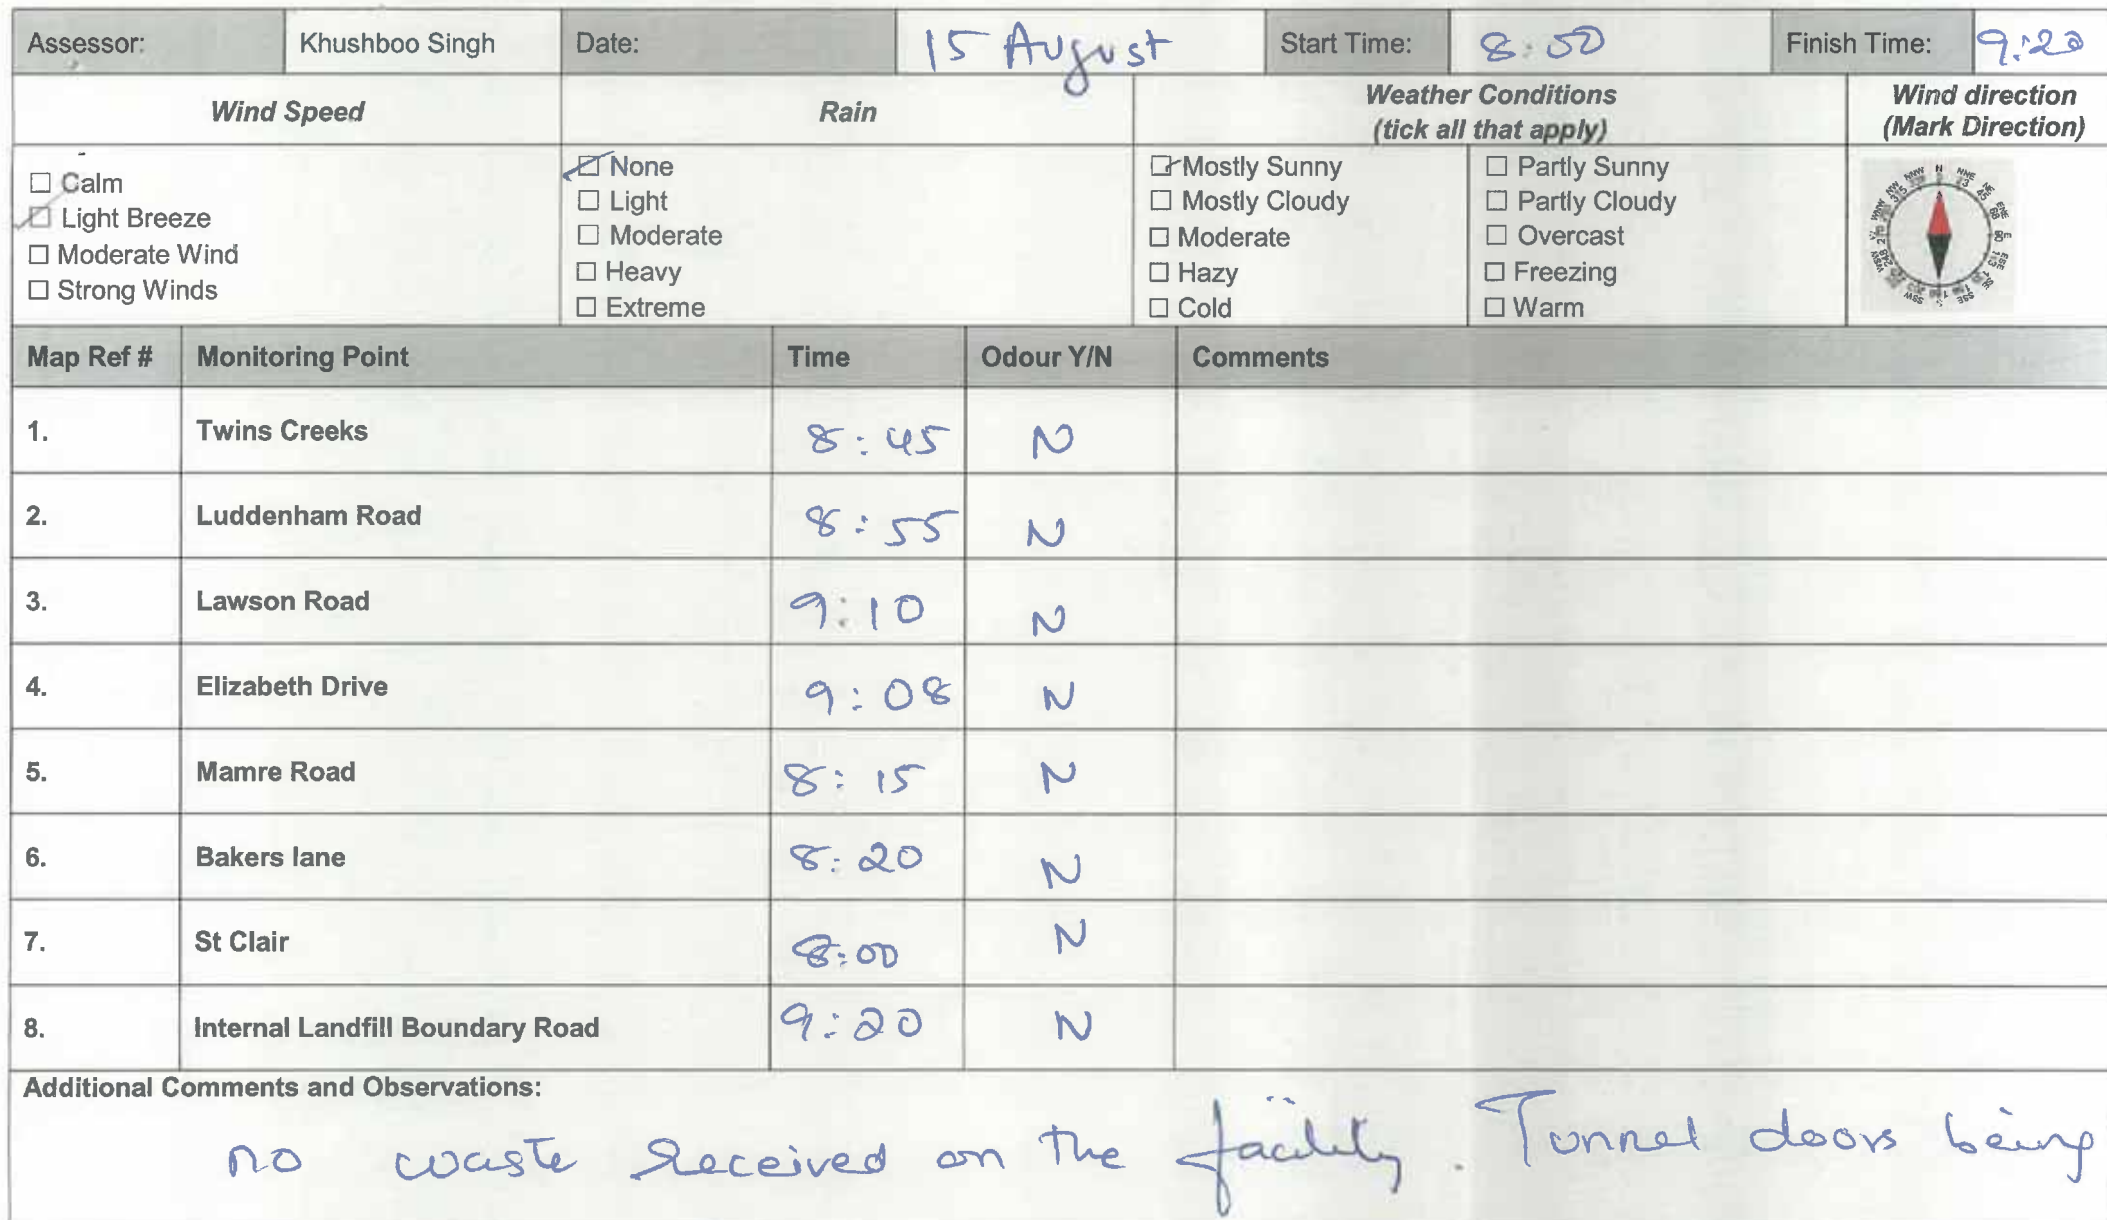 Assessor: Khushboo Singh Date: 15 August Start Time: 8:00 Finish Time: 9:20
Wind Speed Rain Weather Conditions (tick all that apply) Wind direction (Mark Direction)
☐ Calm
☑ Light Breeze
☐ Moderate Wind
☐ Strong Winds
☑ None
☐ Light
☐ Moderate
☐ Heavy
☐ Extreme
☑ Mostly Sunny
☐ Mostly Cloudy
☐ Moderate
☐ Hazy
☐ Cold
☐ Partly Sunny
☐ Partly Cloudy
☐ Overcast
☐ Freezing
☐ Warm
N NNE NE ENE E ESE SE SSE SSW WSW WNW NW NNW
Map Ref # Monitoring Point Time Odour Y/N Comments
1. Twins Creeks 8:45 N
2. Luddenham Road 8:55 N
3. Lawson Road 9:10 N
4. Elizabeth Drive 9:08 N
5. Mamre Road 8:15 N
6. Bakers lane 8:20 N
7. St Clair 8:00 N
8. Internal Landfill Boundary Road 9:20 N
Additional Comments and Observations:
no waste received on the facility. Tunnel doors being